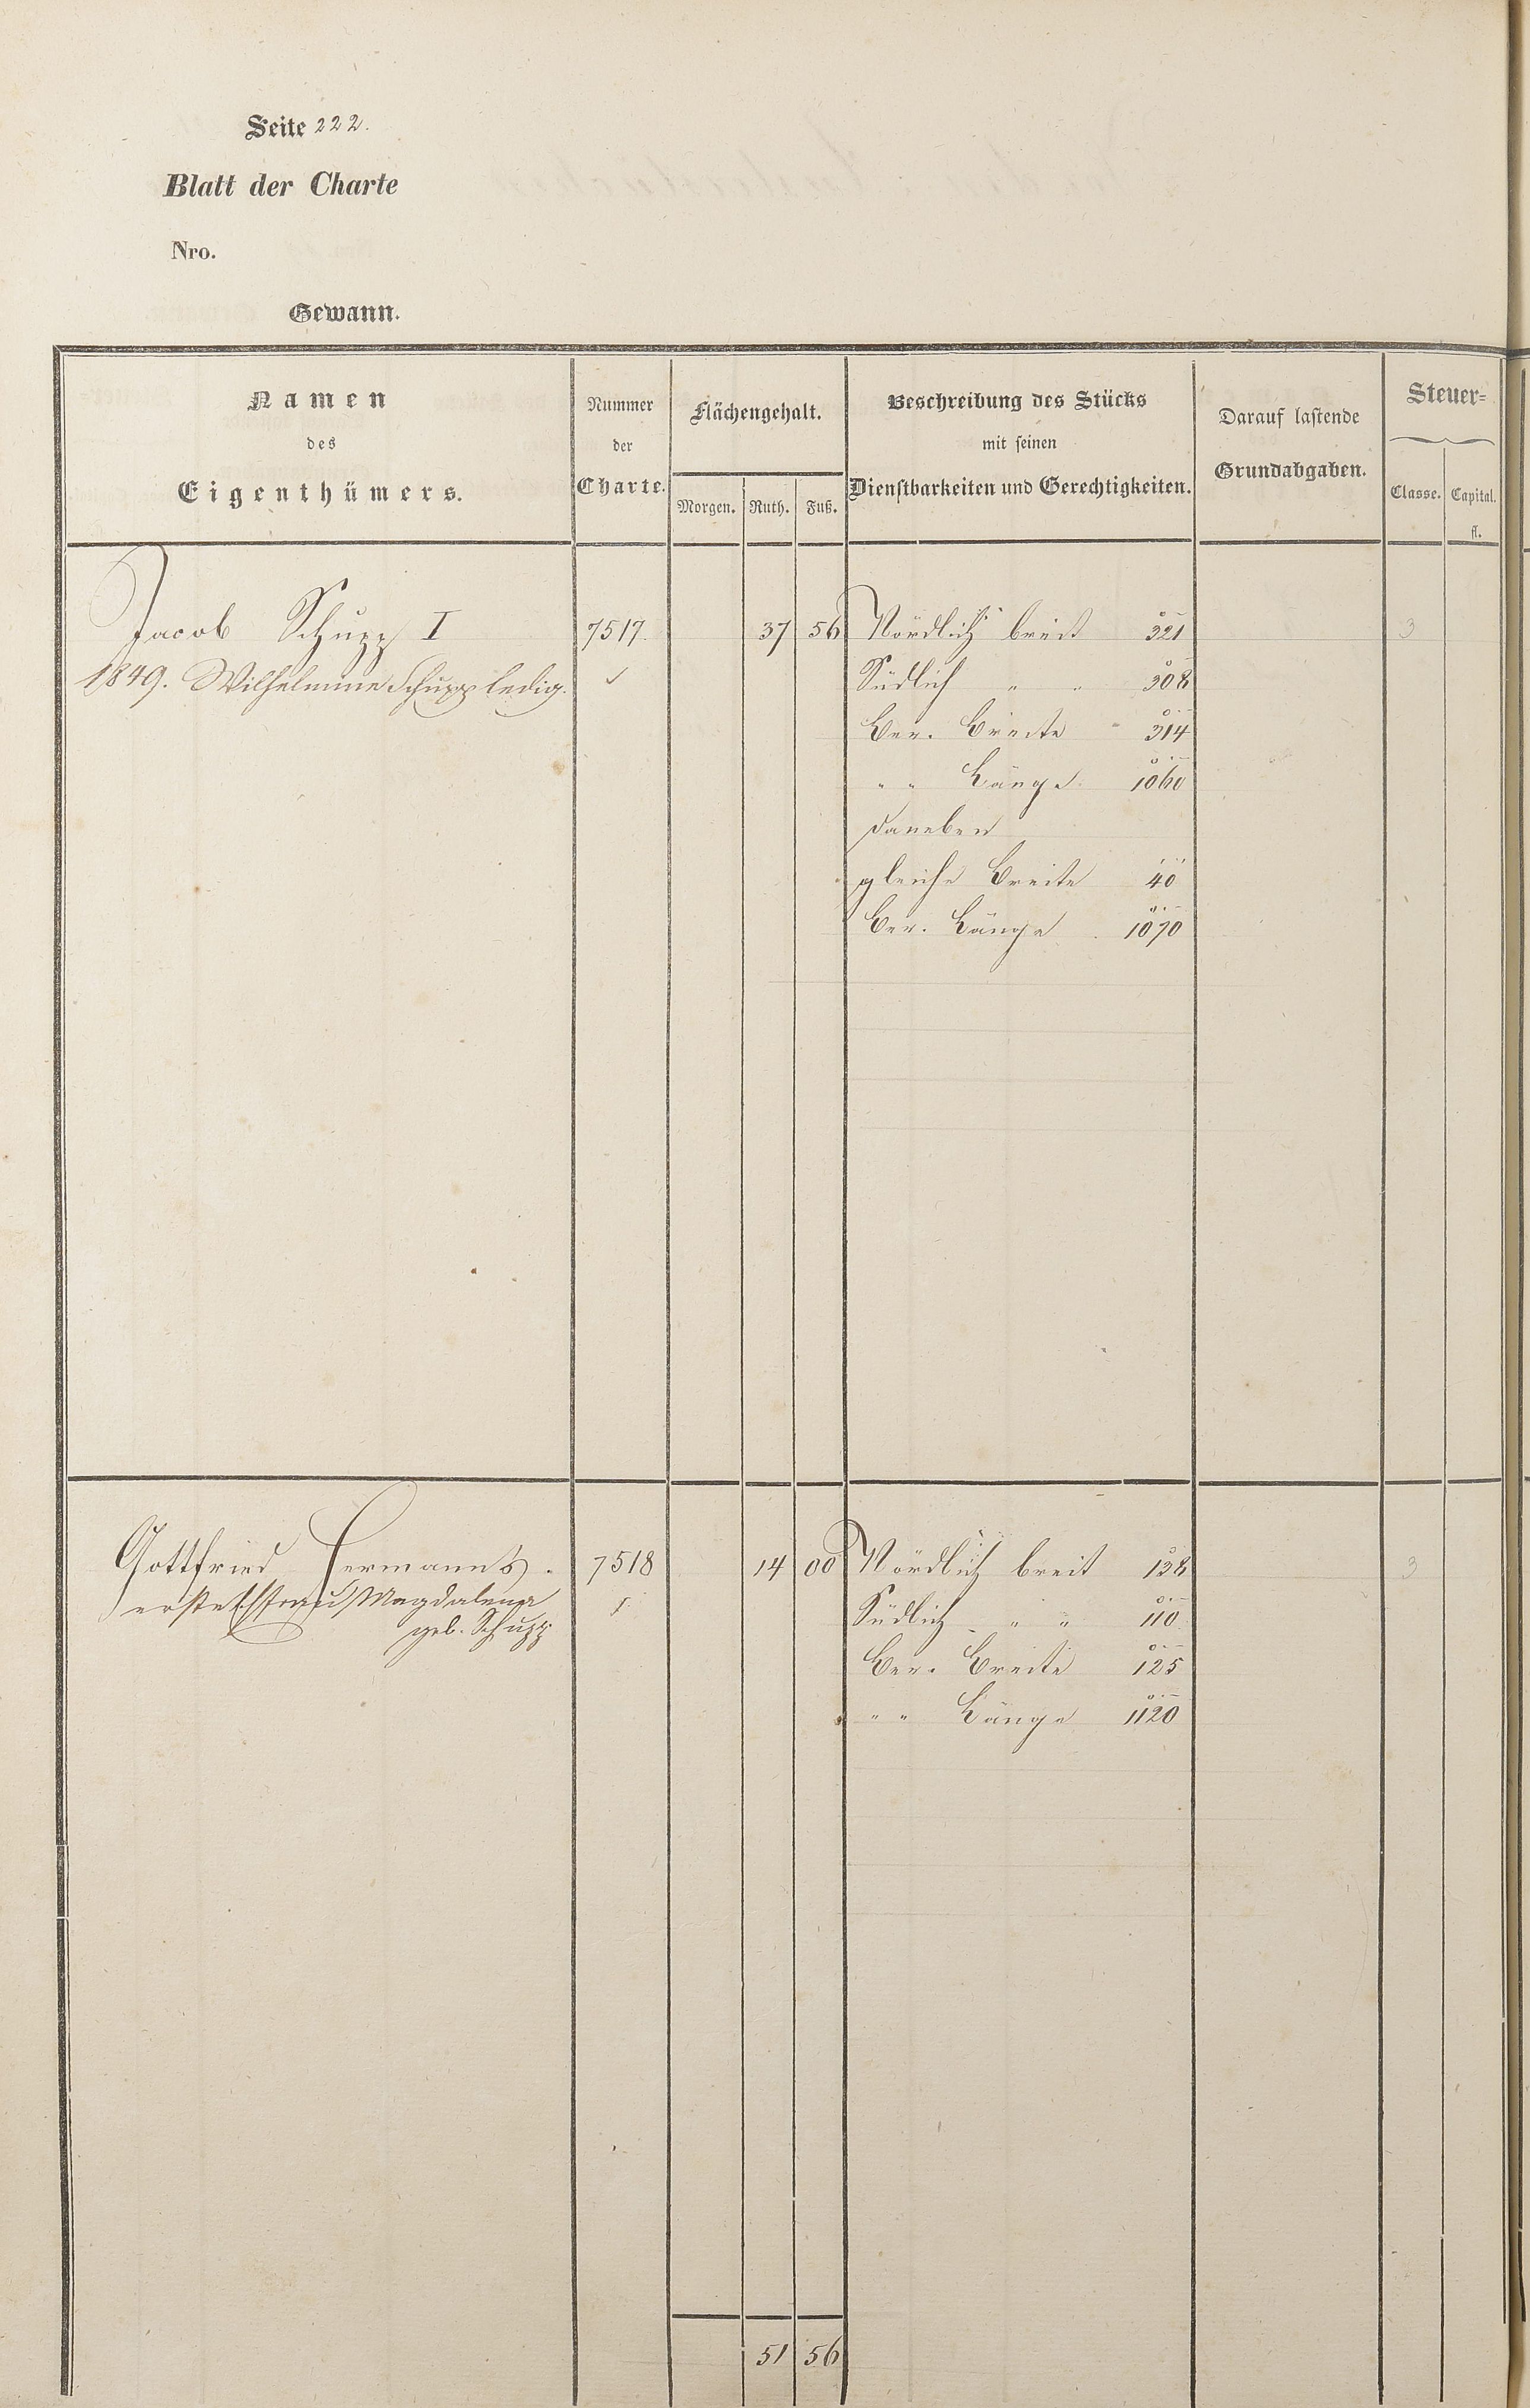 Seite 222.
Blatt der Charte
Nro.
Gewann.
Namen
des
Eigenthümers.
Nummer
der
Charte.
Flächengehalt.
Morgen. Ruth. Fuß.
Beschreibung des Stücks
mit seinen
Dienstbarkeiten und Gerechtigkeiten.
Darauf lastende
Grundabgaben.
Steuer=
Classe. Capital.
fl.
Jacob Schupp I 7517. 37 56 Nördlich breit 321 3
1849. Wilhelmine Schupp ledig. ✓ Südlich " " 308
Ber. Breite " 314
" " Länge 1060
daneben
gleiche Breite 40
Ber. Länge 1070
Gottfried Hermann's. 7518 14 00 Nördlich breit 138 3
erste Ehefrau Magdalena Südlich " " 110
geb. Schupp
Ber. Breite 125
" " Länge 1120
51 56